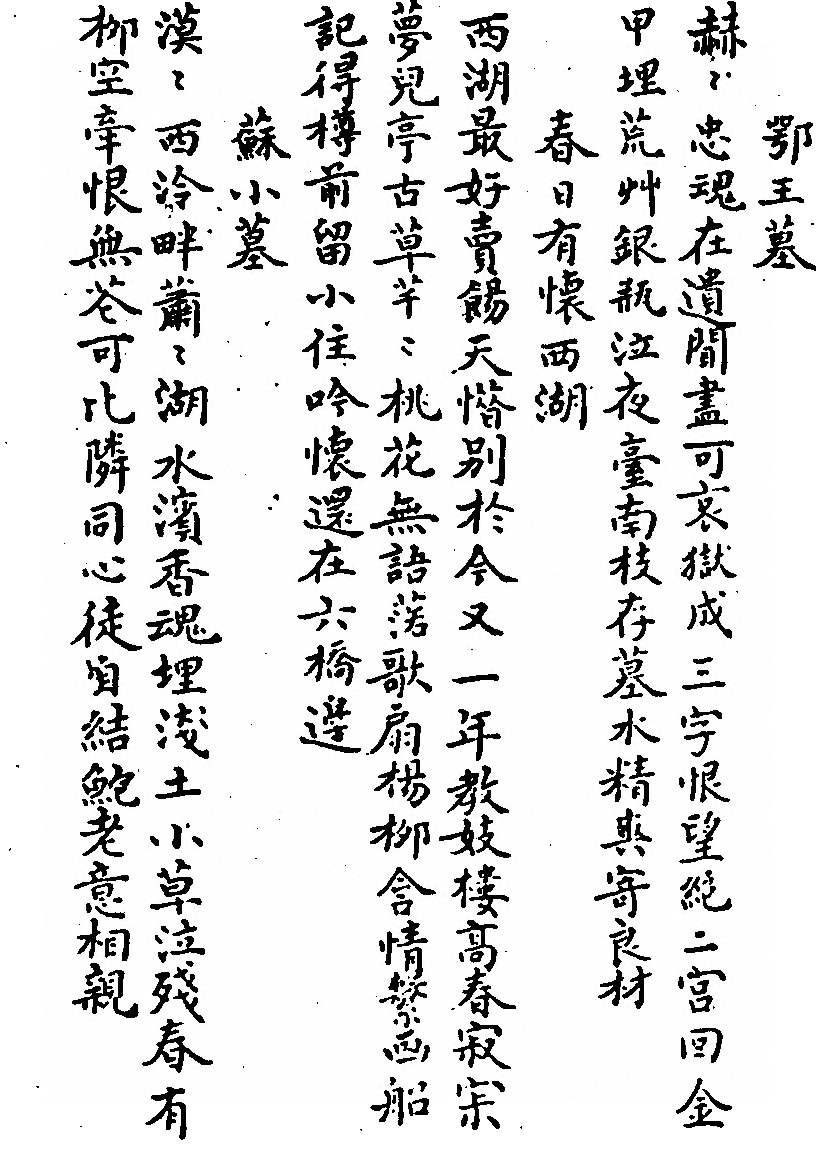 鄂王墓
赫〻忠魂在遺聞盡可哀獄成三字恨望絶二宮回金
甲埋荒艸銀瓶泣夜臺南枝存墓水精與寄良材
春日有懷西湖
西湖最好賣餳天惜別於今又一年教妓樓高春寂寞
夢兒亭古草芊〻桃花無語落歌扇楊柳含情繫画船
記得樽前留小住吟懷還在六橋邊
蘇小墓
漠〻西泠畔蕭〻湖水濱香魂埋淺土小草泣殘春有
柳空牽恨無花可比隣同心徒自結鮑老意相親